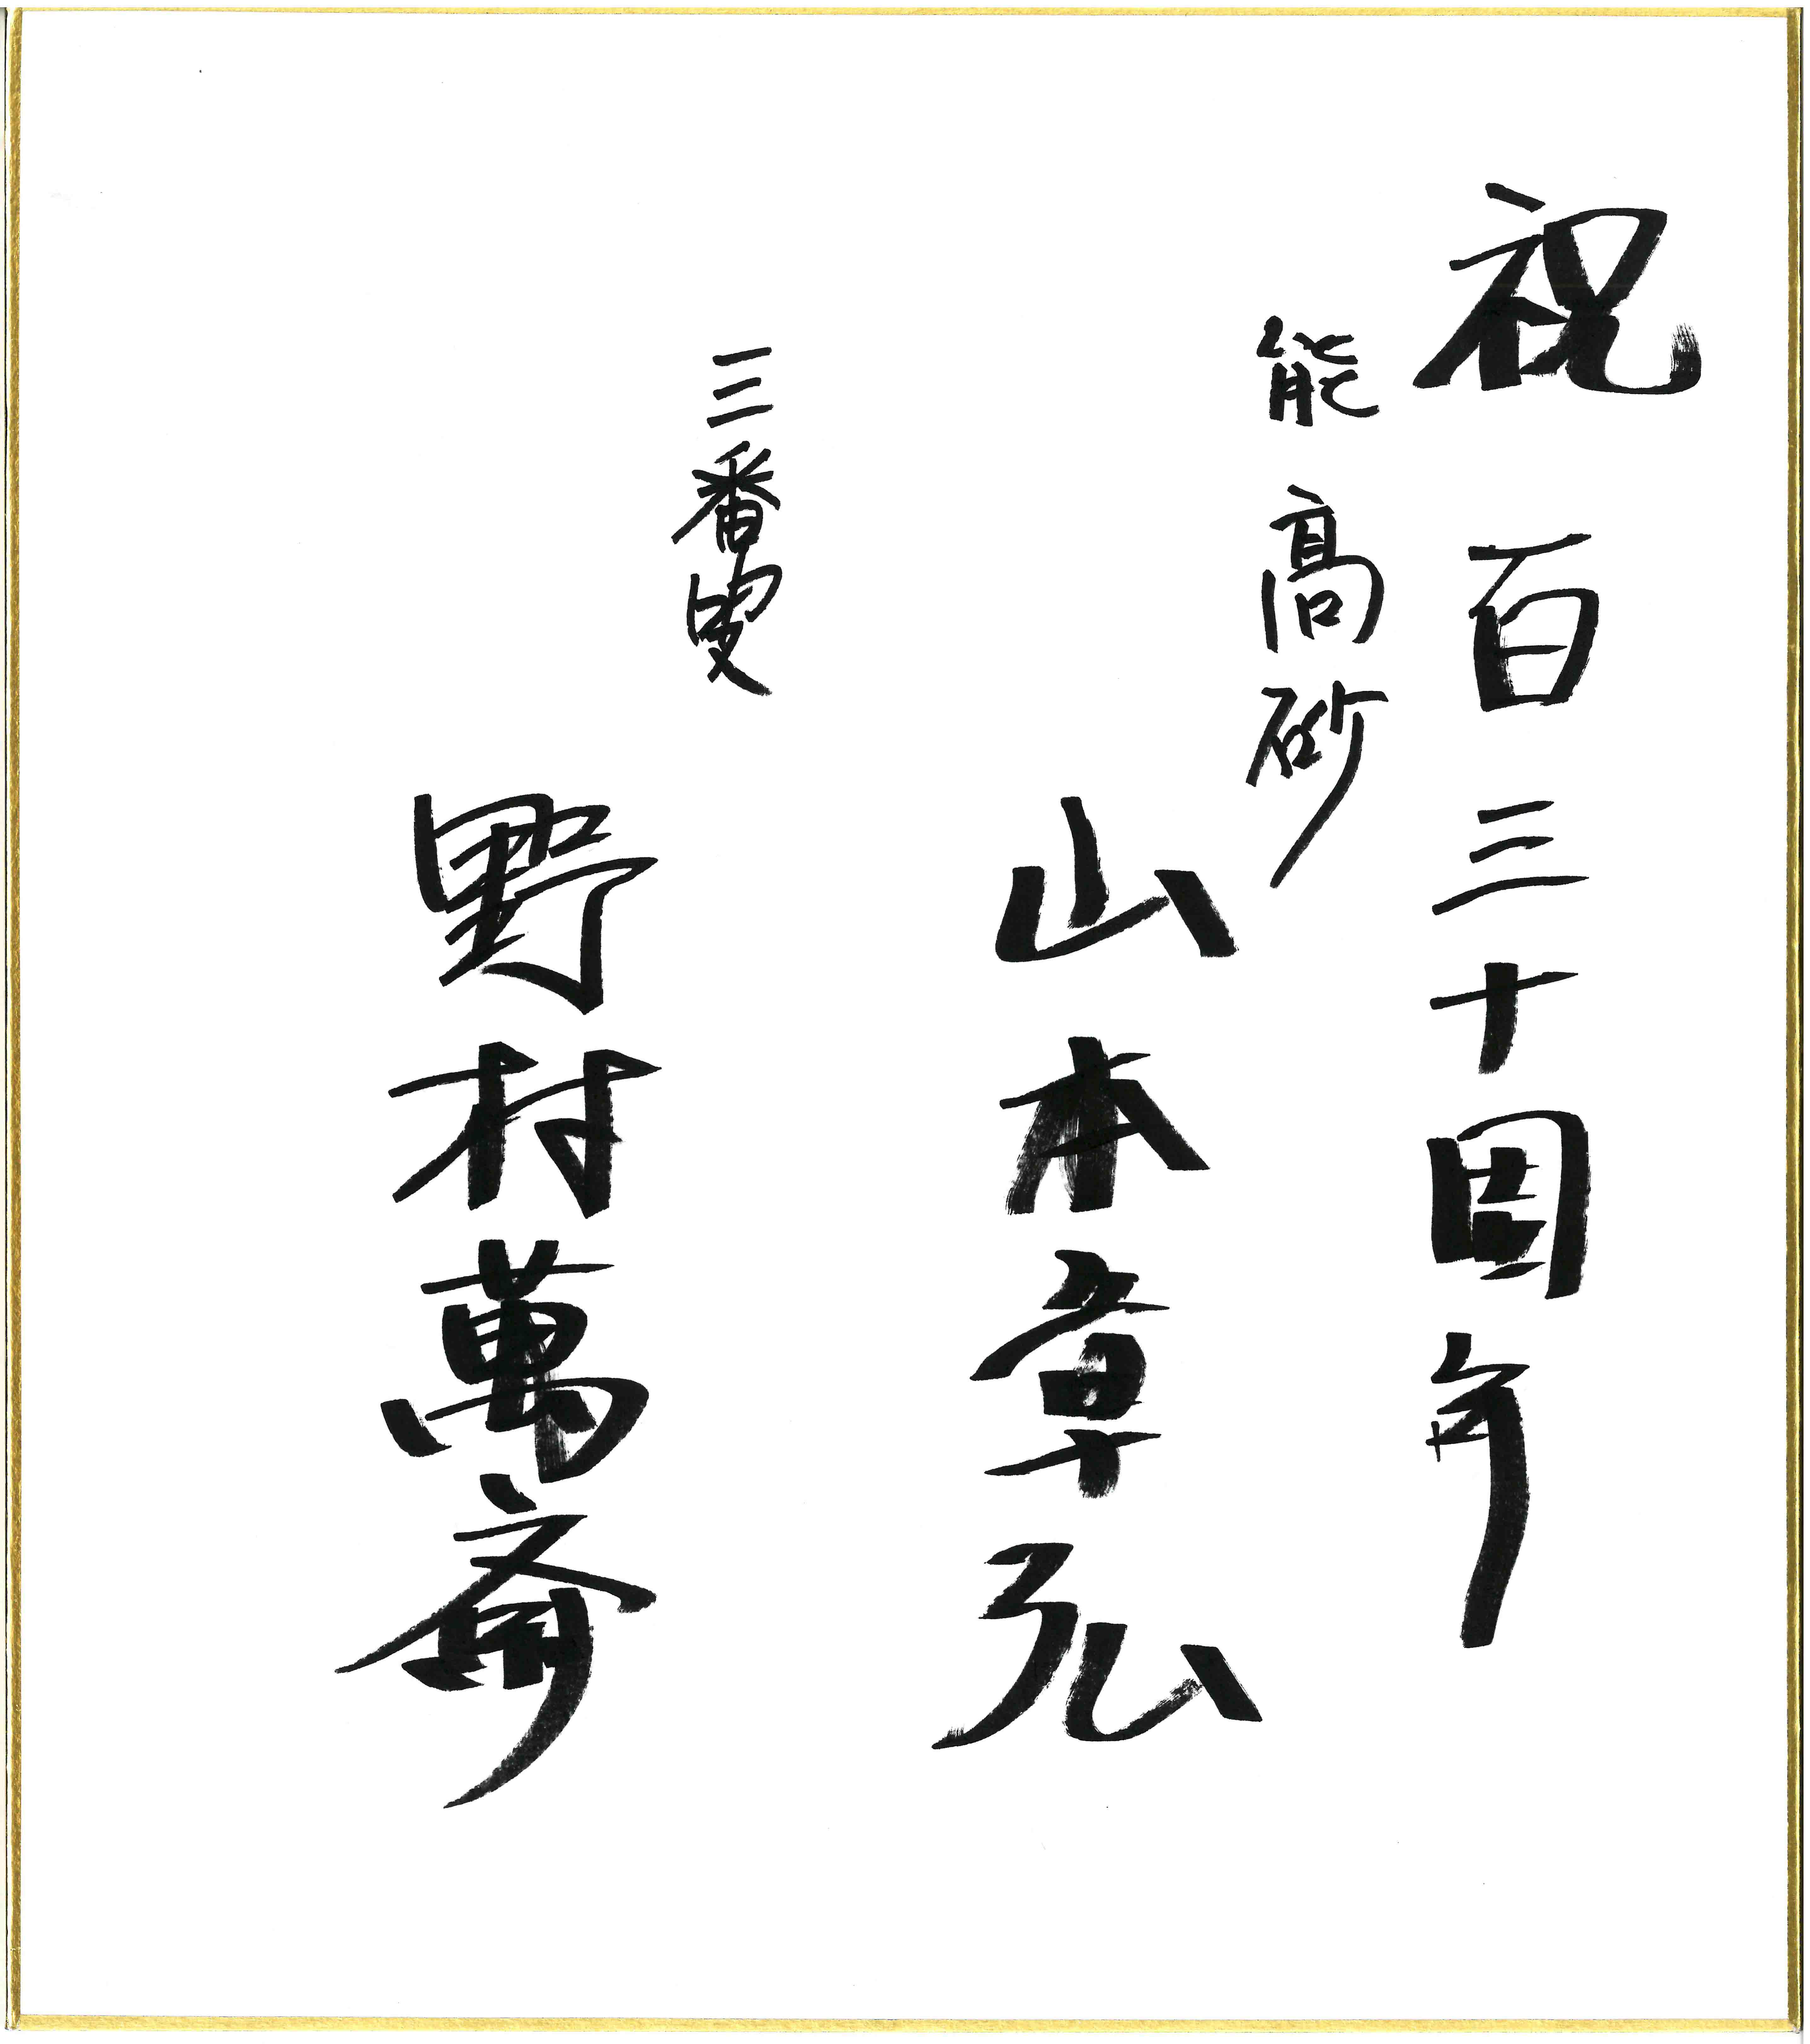 祝 百三十周年
能 高砂
山本章弘
三番叟
野村萬斎